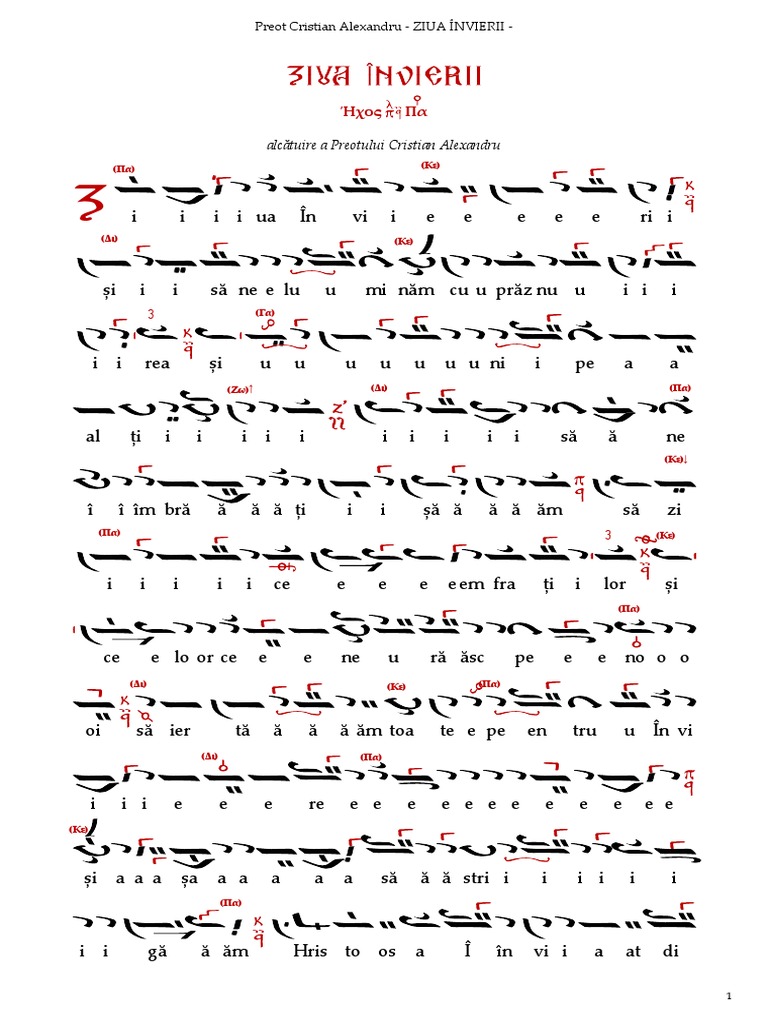 Preot Cristian Alexandru - ZIUA ÎNVIERII -
ZIUA ÎNVIERII
Ἦχος λ π ᾳ Πα
alcătuire a Preotului Cristian Alexandru
(Πα) (Κε)
Z i i i i ua În vi i e e e e e ri i
(Δι) (Κε)
și i i să ne e lu u mi năm cu u prăz nu u i i i
3 (Γα)
i i rea și u u u u u u u ni i pe a a
(Ζω) (Δι) (Πα)
al ți i i i i i i i i i i i i să ă ne
(Κε)
î î îm bră ă ă ă ți i i șă ă ă ă ăm să zi
(Πα) 3 (Κε)
i i i i i ce e e e e em fra ți i lor și
(Πα)
ce e lo or ce e e ne u ră ăsc pe e e no o o
(Δι) (Κε) (Πα)
oi să ier tă ă ă ă ăm toa te e pe en tru u În vi
(Δι) (Πα)
i i i e e e re e e e e e e e e e e
(Κε)
și a a a șa a a a a a să ă ă stri i i i i i i
(Πα)
i i gă ă ăm Hris to os a Î în vi i a at di
1